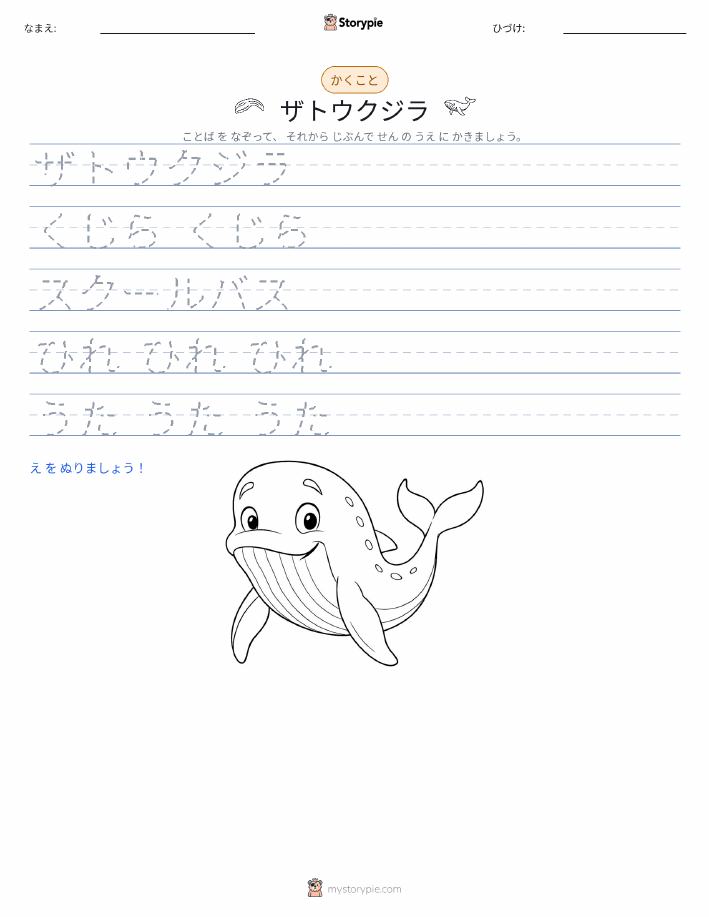 なまえ:
Storypie
ひづけ:
かくこと
ザトウクジラ
ことば を なぞって、 それから じぶんで せん の うえ に かきましょう。
ザトウクジラ
くじら くじら
スクールバス
ひれ ひれ ひれ
うた うた うた
え を ぬりましょう！
mystorypie.com